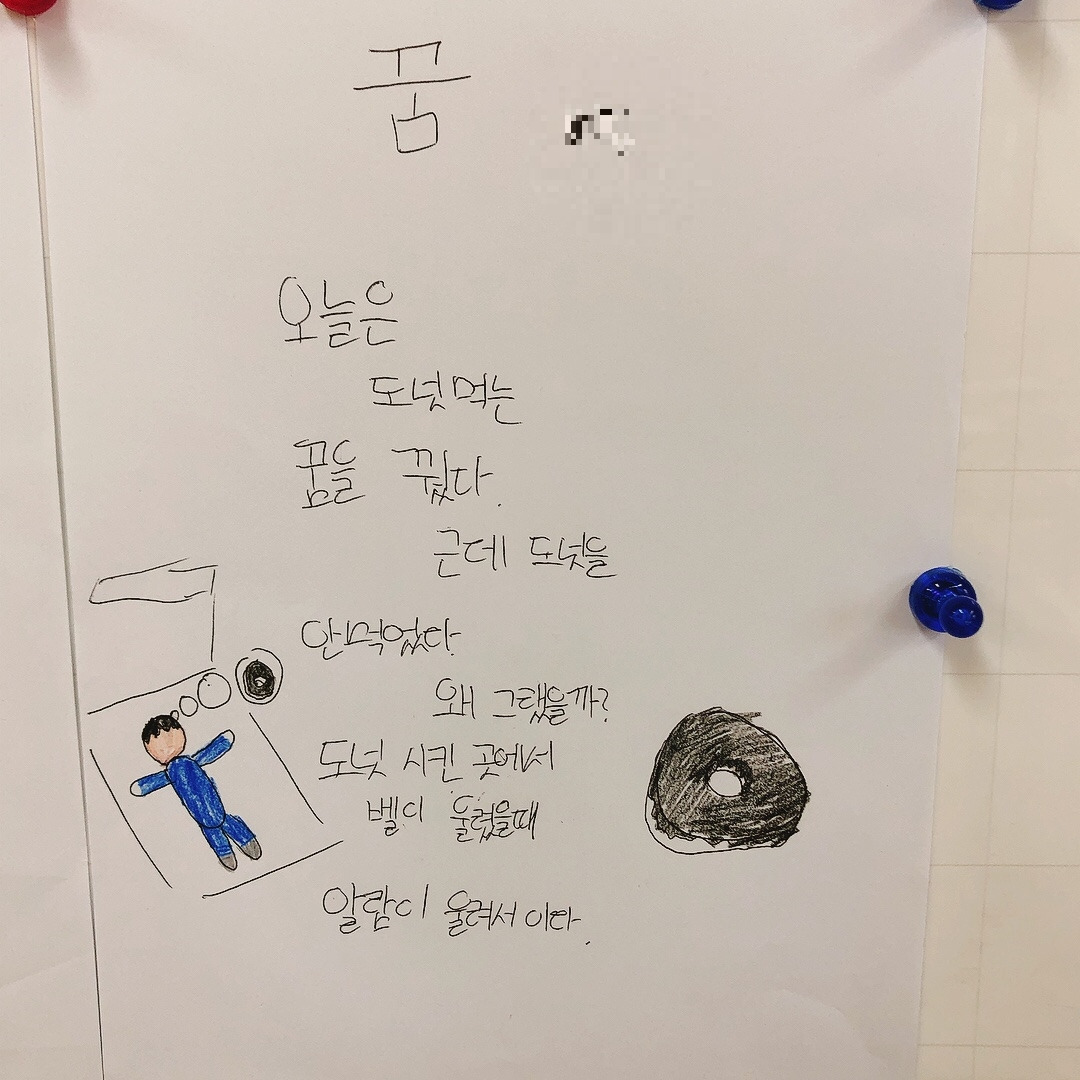 꿈
오늘은
도넛 먹는
꿈을 꿨다.
근데 도넛을
안먹었다.
왜 그랬을까?
도넛 시킨 곳에서
벨이 울렸을때
알람이 울려서 이다.